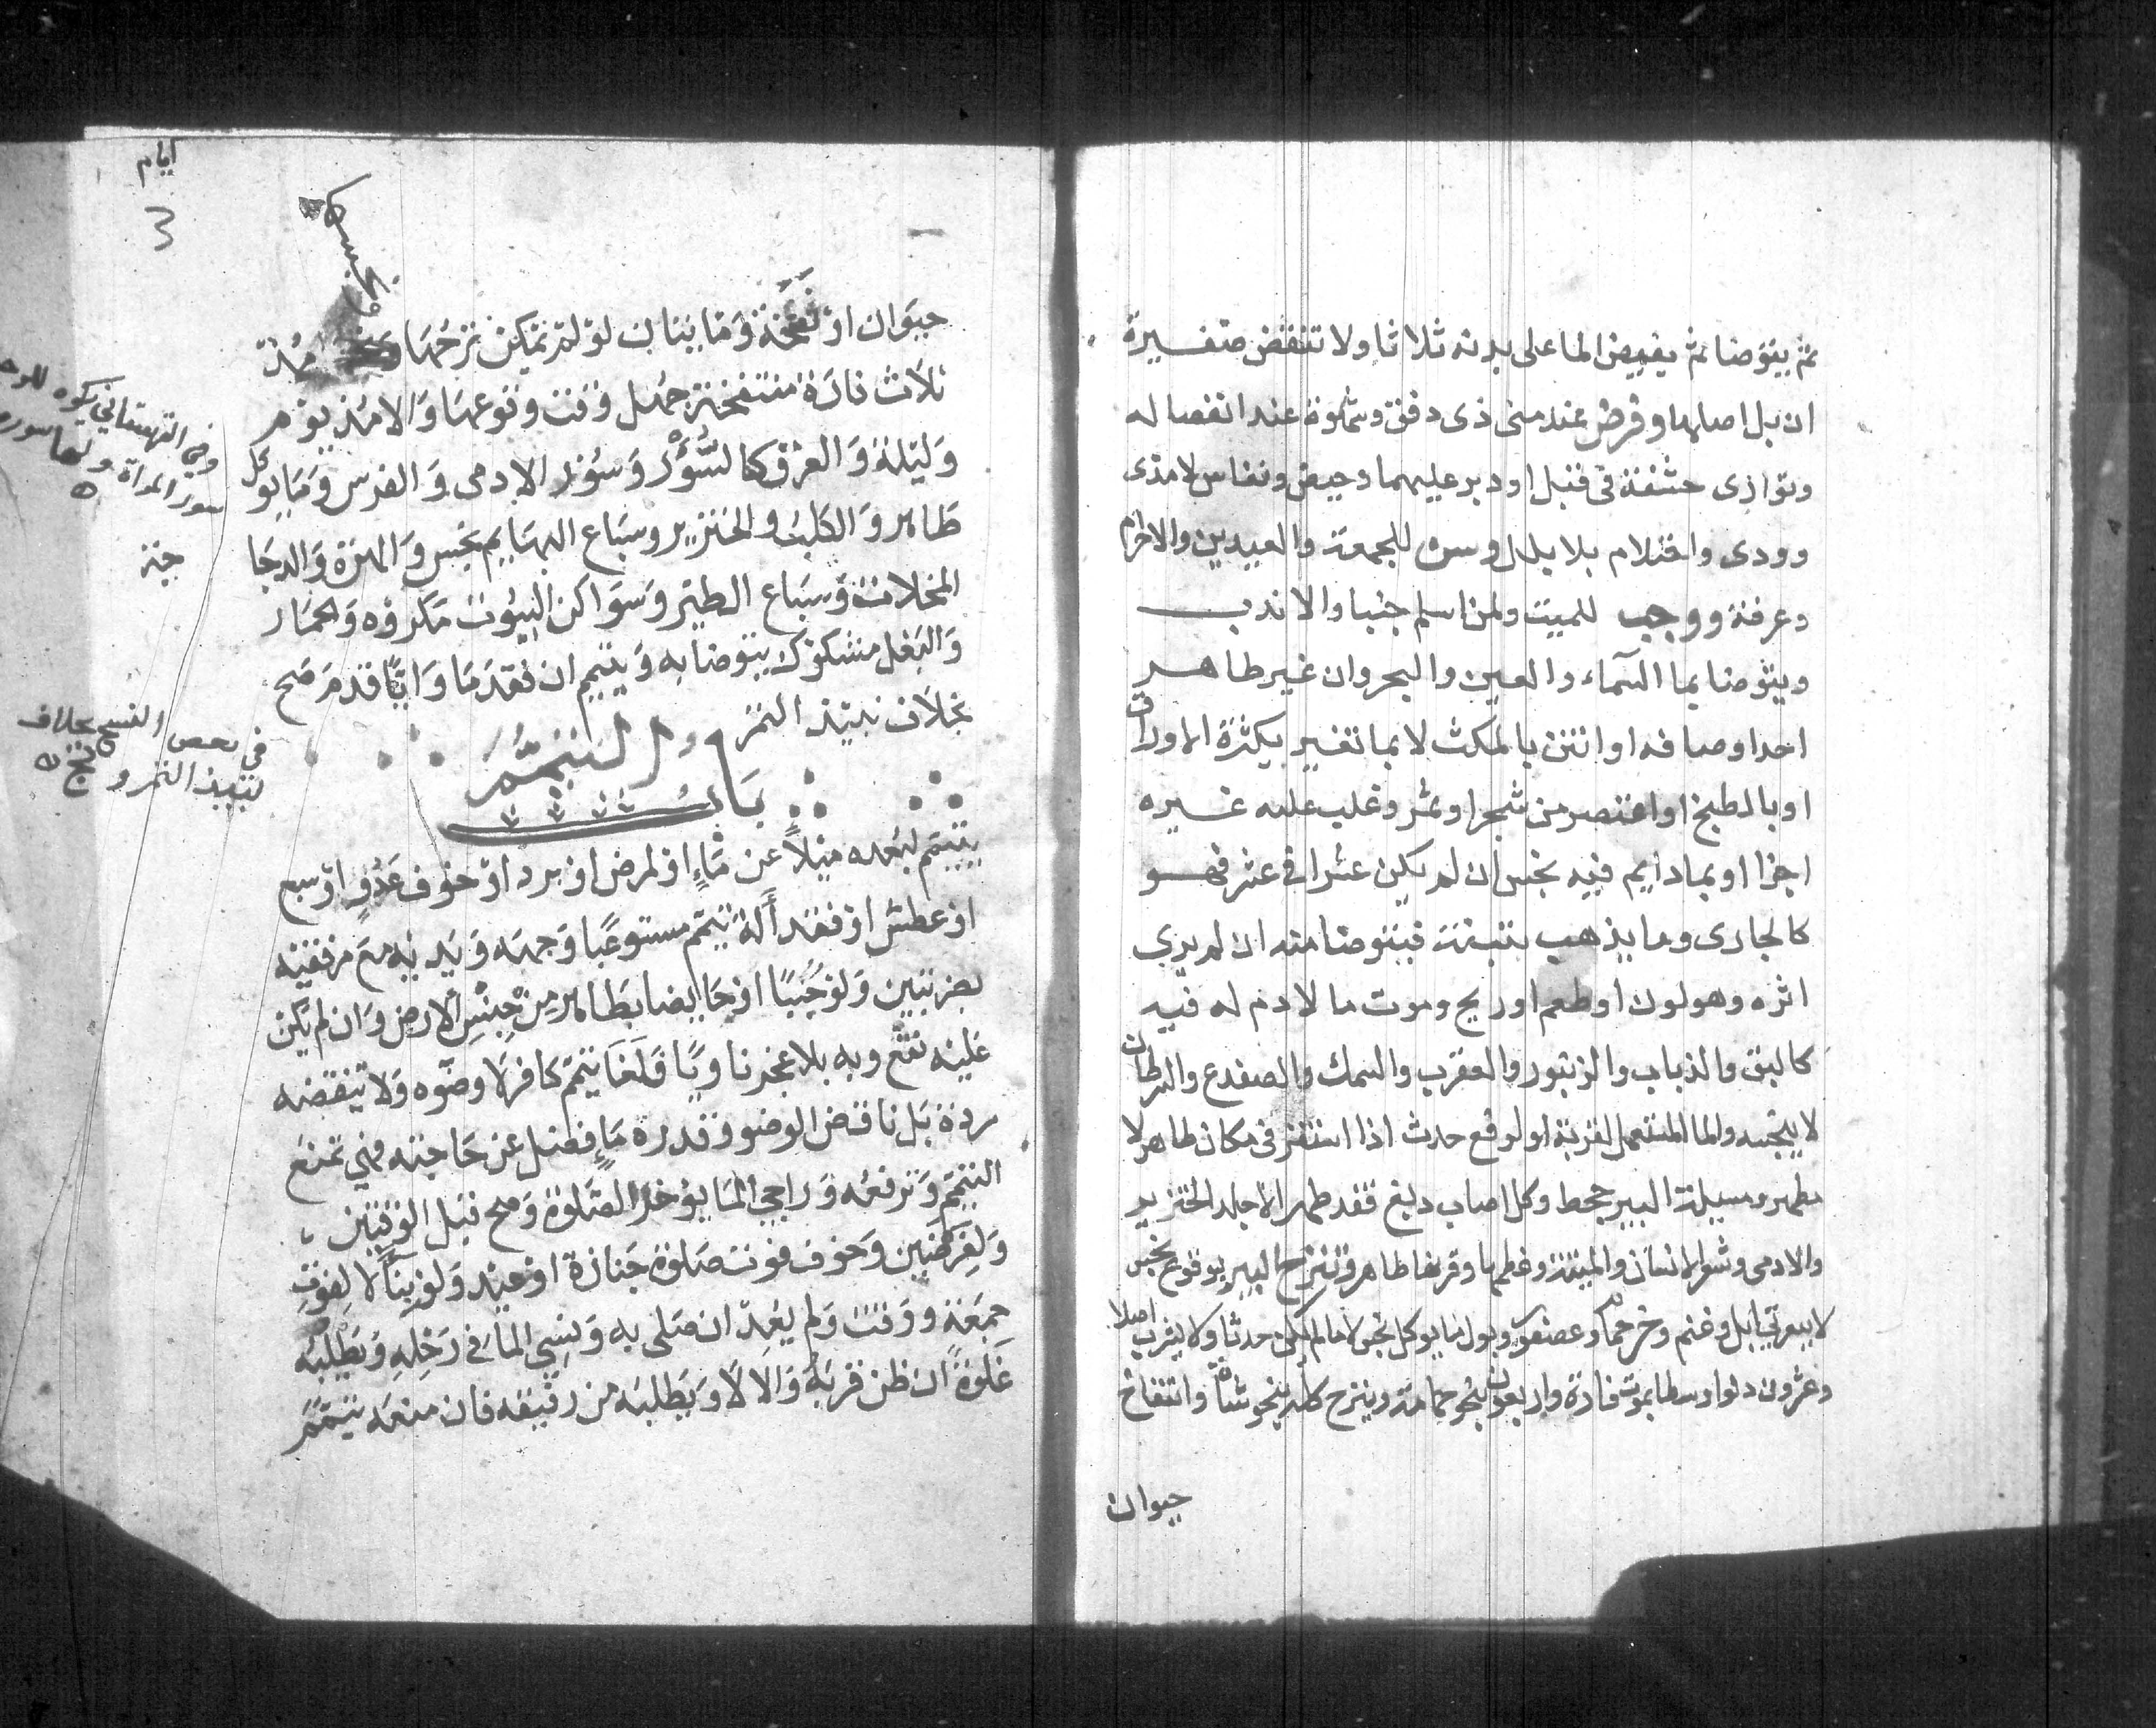 ثم يتوضا ثم يفيض الما على بدنه ثلاثا ولا تنقض ضفيرة
ان بل اصلها وفرض عند منى ذى دفق وشهوة عند انفصاله
وتوارى حشفة في قبل او دبر عليهما وحيض ونفاس لا مذى
وودى واحتلام بلا بلل وسن للجمعة والعيدين والاحرام
وعرفة ووجب للميت ولمن اسلم جنبا والا ندب
ويتوضا بما السماء والعين والبحر وان غير طاهر
احد اوصافه او انتن بالمكث لا بما تغير بكثرة الاوراق
او بالطبخ او اعتصر من شجر او ثمر وغلب عليه غيره
اجزا او بما دايم فيه نجس ان لم يكن عشرا في عشر فهو
كالجارى وما يذهب بتبنة فيتوضا منه ان لم يري
اثره وهو لون او طعم او ريح وموت ما لا دم له فيه
كالبق والذباب والزنبور والعقرب والسمك والضفدع والسرطان
لا ينجسه والما المستعمل لقربة او لرفع حدث اذا استقر في مكان طاهر لا
مطهر ومسيلة البير جحط وكل اهاب دبغ فقد طهر الا جلد الخنزير
والادمى وشعر الانسان والميتة وعظمها وقرنها طاهر وتنزح البير بوقوع نجس
لا ببعرتي ابل وغنم وخرء حمام وعصفور وبول ما يوكل نجس لا ما لم يكن حدثا ولا يشرب اصلا
وعشرون دلوا وسطا بموت فارة واربعون بنحو حمامة وينزح كله بنحو شاة وانتفاخ
حيوان
ايام
حيوان او تفسخه ومايتان لو لم يمكن نزحها مذ
ثلاث فارة منتفخة جهل وقت وقوعها والا مذ يوم
وليلة والعرق كالسؤر وسؤر الادمى والفرس وما يوكل
طاهر والكلب والخنزير وسباع البهايم نجس والهرة والدجا
جة
المخلاة وسباع الطير وسواكن البيوت مكروه والحمار
والبغل مشكوك يتوضا به ويتيمم ان فقد ما وايا قدم صح
بخلاف نبيذ التمر
باب التيمم
يتيمم لبعده ميلا عن ماء او لمرض او برد او خوف عدو او سبع
او عطش او فقد آلة يتيمم مستوعبا وجهه ويديه مع مرفقيه
بضربتين ولو جنبا او حايضا بطاهر من جنس الارض وان لم يكن
عليه نقع وبه بلا عجز ناويا فلغا تيمم كافر لا وضوه ولا تنقضه
ردة بل ناقض الوضو وقدرة ماء فضل عن حاجته فهي تمنع
التيمم وترفعه وراجي الما يؤخر الصلوة وصح قبل الوقتين
ولفرضين وخوف فوت صلوة جنازة او عيد ولو بنا لا لفوت
جمعة ووقت ولم يعد ان صلى به ونسي الما في رحله ويطلبه
غلوة ان ظن قربه والا لا ويطلبه من رفيقه فان منعه تيمم
وفي القهستاني يكره للرجل
سور المراة ولها سوره
في بعض النسخ بخلاف
نبيذ التمر